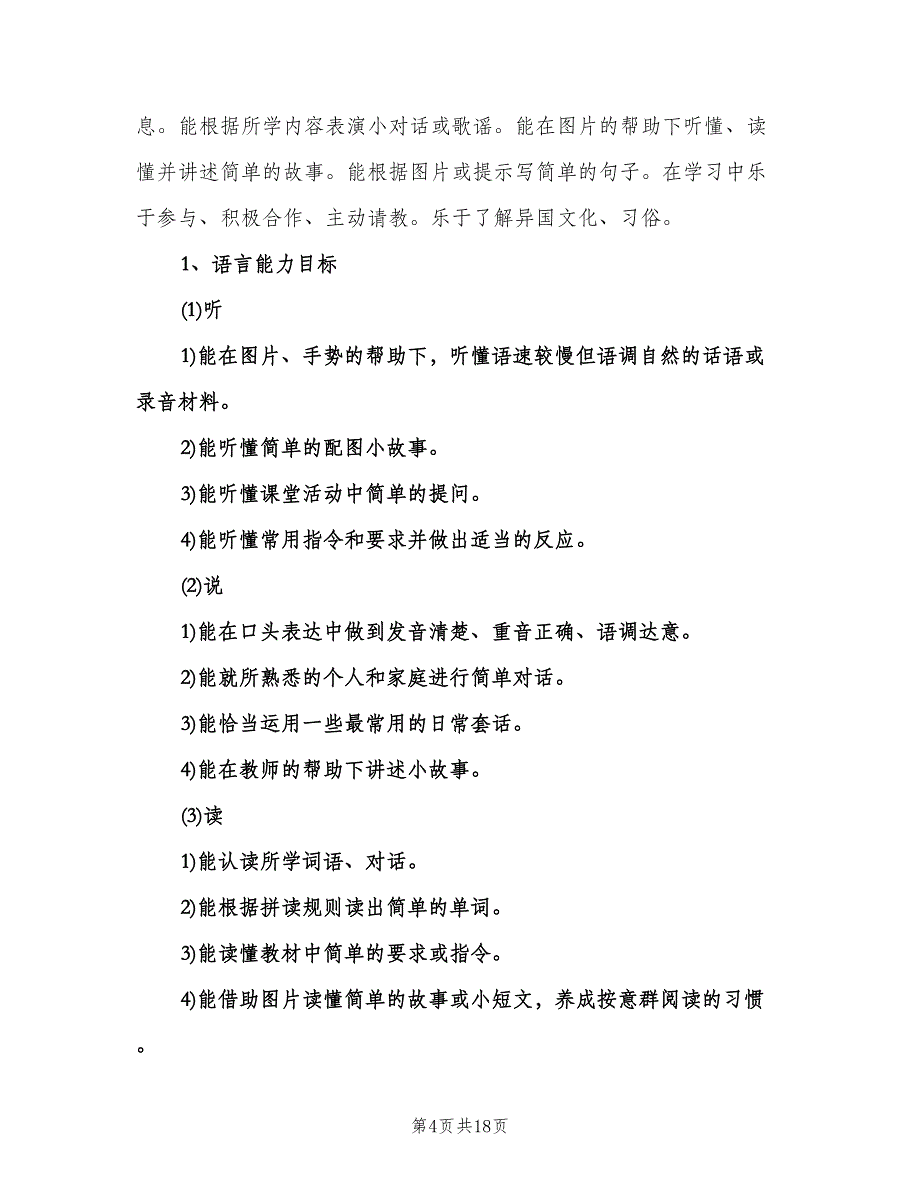 息。能根据所学内容表演小对话或歌谣。能在图片的帮助下听懂、读
懂并讲述简单的故事。能根据图片或提示写简单的句子。在学习中乐
于参与、积极合作、主动请教。乐于了解异国文化、习俗。
1、语言能力目标
(1)听
1)能在图片、手势的帮助下，听懂语速较慢但语调自然的话语或
录音材料。
2)能听懂简单的配图小故事。
3)能听懂课堂活动中简单的提问。
4)能听懂常用指令和要求并做出适当的反应。
(2)说
1)能在口头表达中做到发音清楚、重音正确、语调达意。
2)能就所熟悉的个人和家庭进行简单对话。
3)能恰当运用一些最常用的日常套话。
4)能在教师的帮助下讲述小故事。
(3)读
1)能认读所学词语、对话。
2)能根据拼读规则读出简单的单词。
3)能读懂教材中简单的要求或指令。
4)能借助图片读懂简单的故事或小短文，养成按意群阅读的习惯
。
第4页共18页